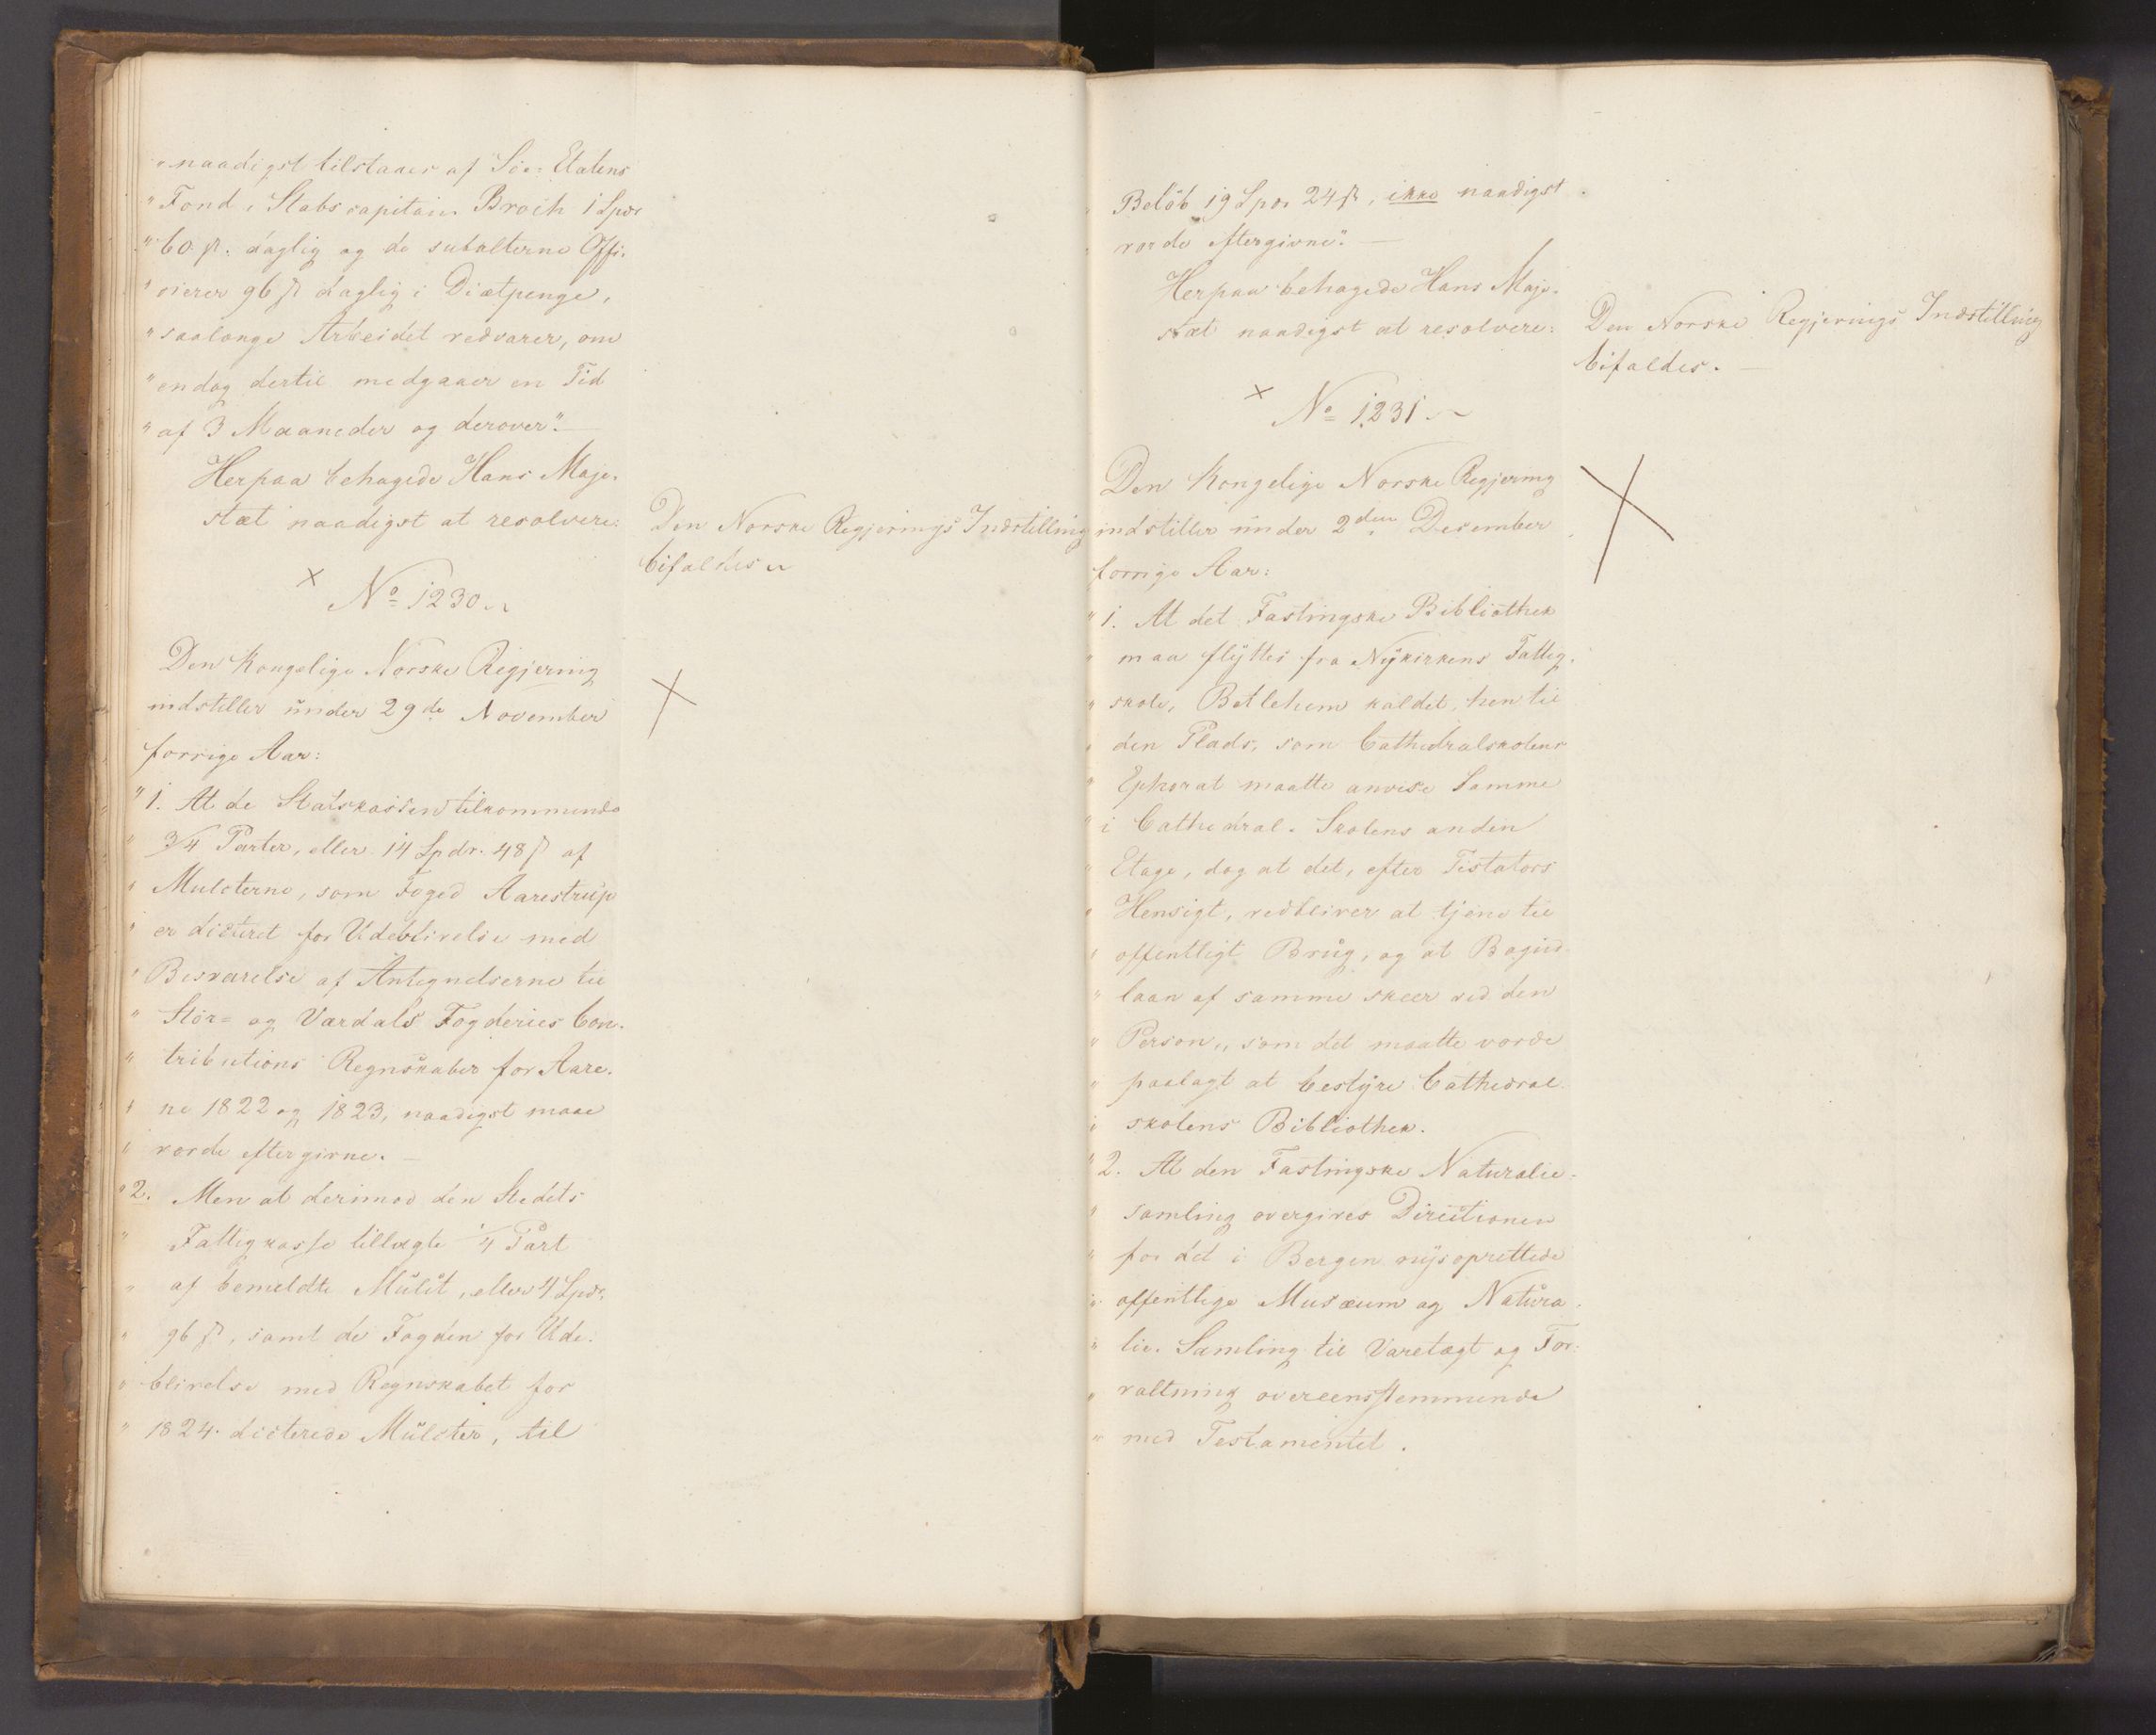 "naadigst tilstaaes af Söe-Etatens
"Fond, Stabscapitain Broch 1 Spdr
"60 ß. daglig og de subalterne Offi-
"cierer 96 ß daglig i Diætpenge,
"saalænge Arbeidet vedvarer, om
"endog dertil medgaaer en Tid
"af 3 Maaneder og derover".—
Herpaa behagede Hans Maje-
stæt naadigst at resolvere:
Den Norske Regjerings Indstilling
bifaldes.
× No 1230.
Den Kongelige Norske Regjering
indstiller under 29de November
forrige Aar:
"1. At de Statskassen tilkommende
" 3/4 Parter, eller 14 Spdr. 48 ß af
" Mulcterne, som Foged Aarestrup
" er dicteret for Udeblivelse med
" Besvarelse af Antegnelserne til
" Stör- og Værdals Fogderies Con-
" tributions Regnskaber for Aare-
" ne 1822 og 1823, naadigst maae
" vorde eftergivne.—
"2. Men at derimod den Stedets
" Fattigkasse tillagte 1/4 Part
" af bemeldte Mulct, eller 4 Spdr.
" 96 ß, samt de Fogden for Ude-
" blivelse med Regnskabet for
" 1824 dicterede Mulcter, til
" Belöb 19 Spdr 24 ß, ikke naadigst
" vorde eftergivne".—
Herpaa behagede Hans Maje-
stæt naadigst at resolvere:
Den Norske Regjerings Indstilling
bifaldes.—
× No 1231.
Den Kongelige Norske Regjering
indstiller under 2den December
forrige Aar:
"1. At det Fastingske Bibliothek
" maa flyttes fra Nykirkens Fattig-
" skole, Betlehem kaldet, hen til
" den Plads, som Cathedralskolens
" Ephorat maatte anvise Samme
" i Cathedral-Skolens anden
" Etage, dog at det, efter Testators
" Hensigt, vedbliver at tjene til
" offentligt Brug, og at Bogud-
" laan af samme skeer ved den
" Person, som det maatte vorde
" paalagt at bestyre Cathedral-
" skolens Bibliothek.
"2. At den Fastingske Naturalie-
" samling overgives Directionen
" for det i Bergen nysoprettede
" offentlige Musæum og Natura-
" lie-Samling til Varetægt og For-
" valtning overeensstemmende
" med Testamentet.